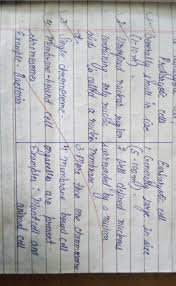 Prokaryotic cell
1. Generally small in size
(1-10 m)
2. nuclear region
containing only nucleic
acid
3. Single chromosome
4. Membrane-bound cell
Example - Bacteria
Eukaryotic cell
1. Generally large in size
(5-100 m)
2. Well defined nucleus
surrounded by a nuclear
membrane
3. More than one chromosome
4. Membrane bound cell
organelles are present
Examples: plant cell and
animal cell